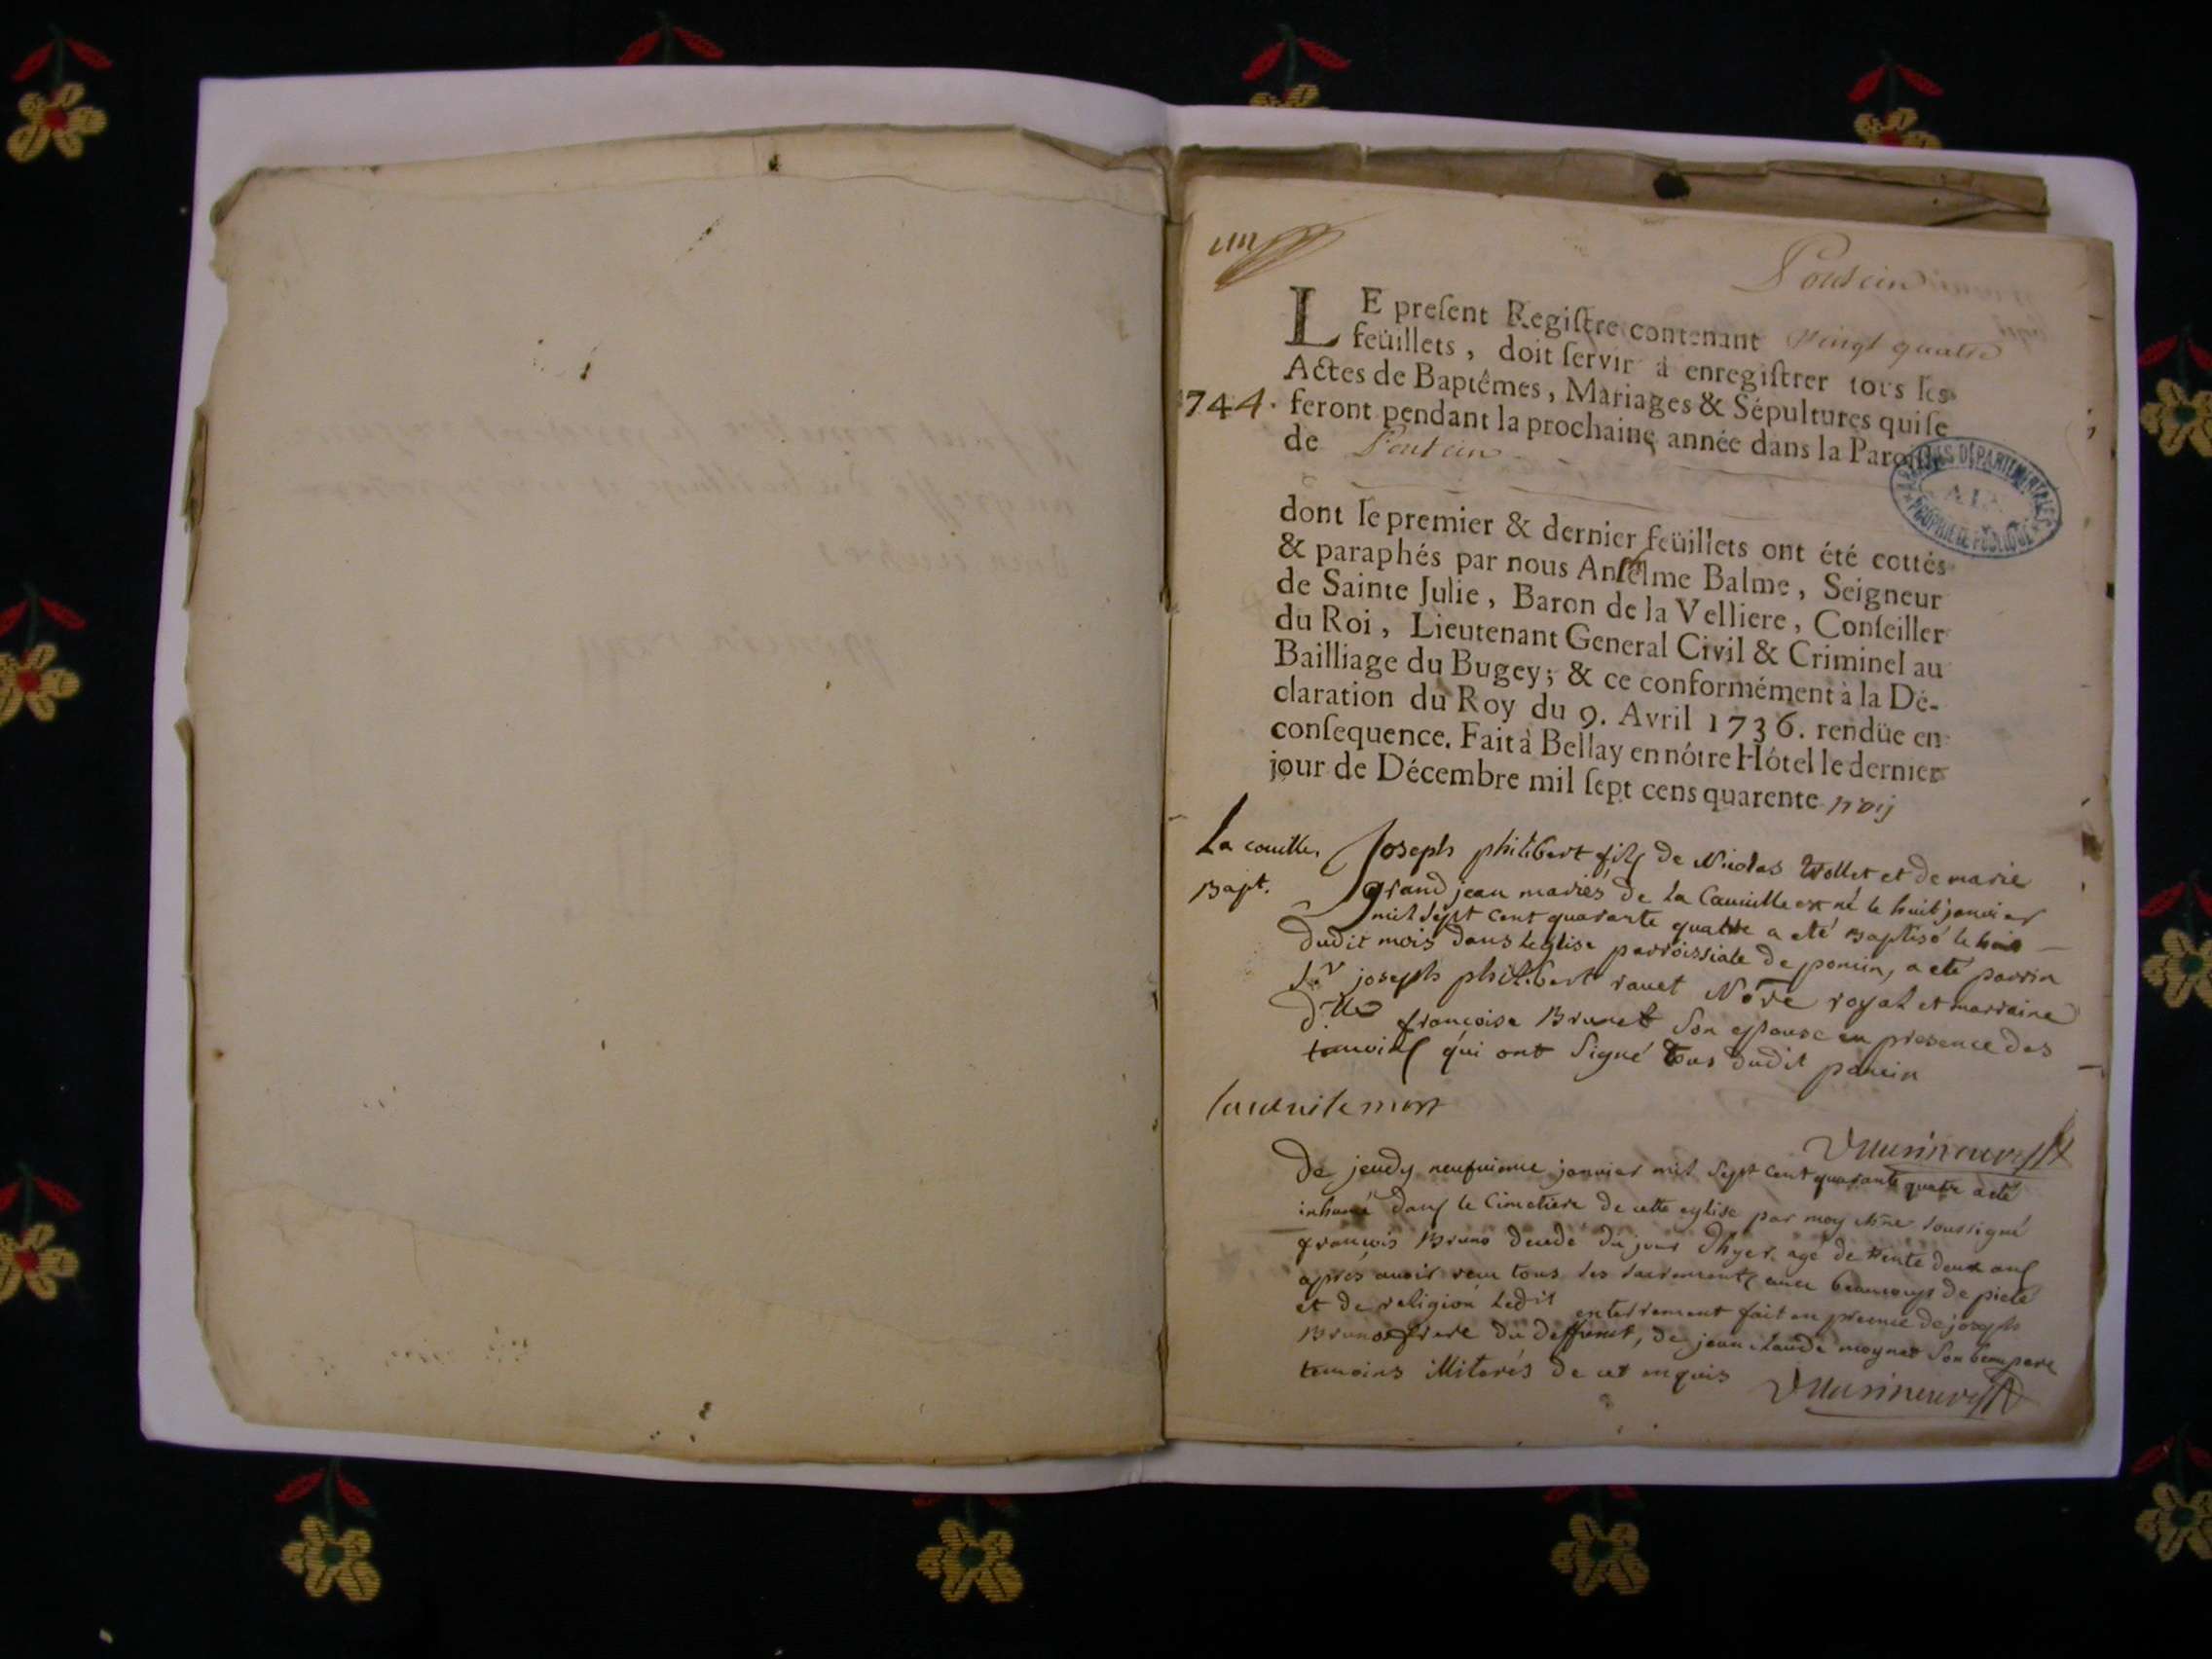 un
Poncin
LE preſent Regiſtre contenant vingt quatre
feüillets, doit ſervir à enregiſtrer tous les
Actes de Baptêmes, Mariages & Sépultures qui ſe
1744. feront pendant la prochaine année dans la Paroiſſe
de Poncin
ARCHIVES DÉPARTEMENTALES
AIN
PROPRIÉTÉ PUBLIQUE
dont le premier & dernier feüillets ont été cottés
& paraphés par nous Anſelme Balme, Seigneur
de Sainte Julie, Baron de la Velliere, Conſeiller
du Roi, Lieutenant General Civil & Criminel au
Bailliage du Bugey; & ce conformément à la Dé-
claration du Roy du 9. Avril 1736. rendüe en
conſequence. Fait à Bellay en nôtre Hôtel le dernier
jour de Décembre mil ſept cens quarente troij
Joseph philibert fils de Nicolas et de marie
Bapt. grand jean mariés de la est né le huit janvier
mil sept cent quarante quattre a eté Baptisé le huit
dudit mois dans leglise parroissiale de poncin, a eté parrin
Sr joseph philibert ravet Nore royal et marraine
dlle francoise Brunet son epouse en presence des
temoins qui ont signé tous dudit poncin
mort
de jeudy neufvieme janvier mil sept cent quarante quatre a eté
inhumé dans le Cimetiere de cette eglise par moy soussigné
francois Bruno decedé du jour dhyer agé de trente deux ans
apres avoir reçu tous les sacrements avec beaucoups de pieté
et de religion ledit enterrement fait en presence de joseph
Bruno frere du deffunct, de jean claude moynet son beaupere
temoins illiterés de ce enquis